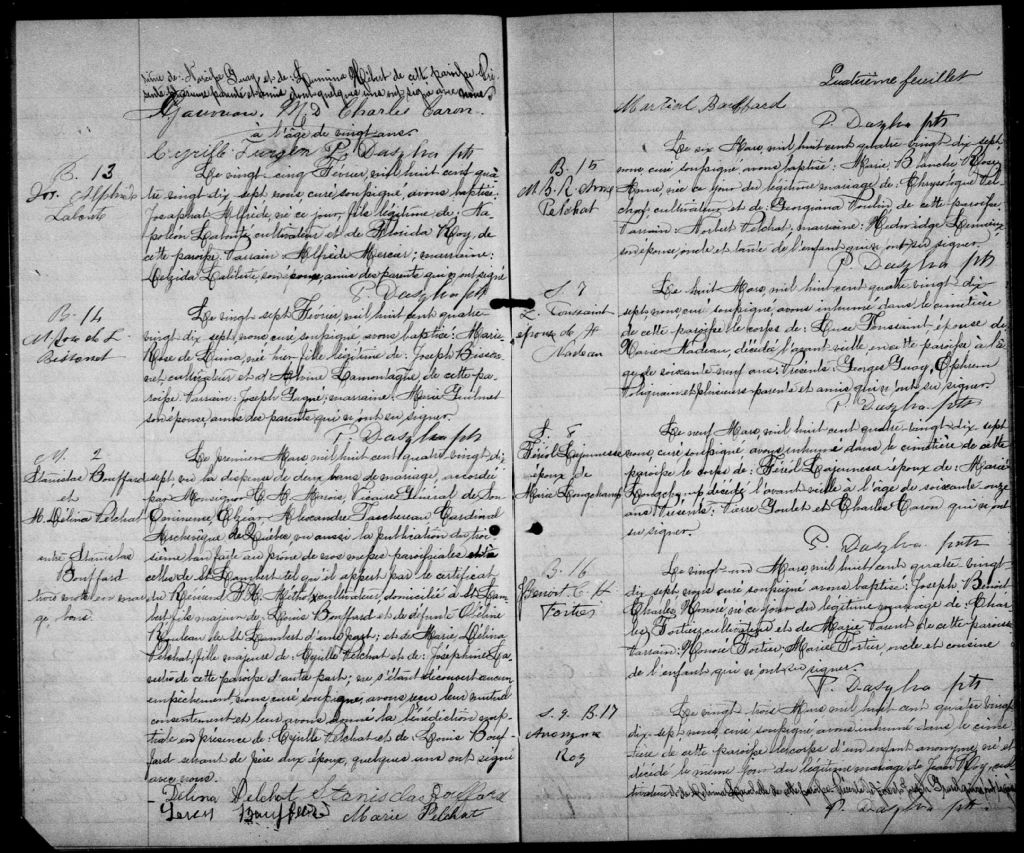 time de Narcisse Guay et de Lumina Hébert de cette paroisse. Pré-
sents parents et amis dont quelques uns ont signé avec nous
Charles Caron
à l'âge de vingt ans
Cyrille P. Daszlva ptr
B. 13
Jos. Alphrède
Labonté
Le vingt cinq Février, mil huit cent qua-
tre vingt dix sept, nous curé soussigné avons baptisé:
Josaphat Alfrède, né ce jour, fils légitime de: Na-
poléon Labonté, cultivateur et de Florida Roy, de
cette paroisse. Parrain Alfrède Mercier; marraine:
Labonté, son épouse, amis des parents qui ont signé
P. Daszlva ptr
B. 14
M. Rose de L.
Bissonet
Le vingt sept Février, mil huit cent quatre
vingt dix sept, nous curé soussigné, avons baptisé: Marie
Rose de Luma, née hier, fille légitime de: Joseph Bisson-
net, cultivateur et d' Alvine Lamontagne, de cette pa-
roisse. Parrain: Joseph Gagné; marraine: Marie
son épouse, amis des parents, qui n'ont su signer.
P. Daszlva ptr
M. 2
Stanislas Bouffard
et
M. Délina Pelchat
entre Stanislas
Bouffard
Le premier Mars, mil huit cent quatre vingt dix
sept, vu la dispense de deux bans de mariage, accordée
par Monsignor C. A. Marois, Vicaire Général de Son
Eminence Elzéar Alexandre Taschereau Cardinal
Archevêque de Québec, vu aussi la publication du troi-
sième ban faite au prône de nos messes paroissiales et à
celles de St Lambert tel qu'il appert par le certificat
du Révérend cultivateur, domicilié à St Lam-
bert, fils majeur de: Louis Bouffard et de défunte Céline
de St Lambert d'une part; et de Marie Délina
Pelchat, fille majeure de: Cyrille Pelchat et de: Joséphine
de cette paroisse d'autre part; ne s'étant découvert aucun
empêchement, nous, curé soussigné, avons reçu leur mutuel
consentement et leur avons donné la bénédiction nup-
tiale en présence de: Cyrille Pelchat et de: Louis Bouf-
fard servant de père aux époux, quelques uns ont signé
avec nous.
Délina Pelchat Stanislas Bouffard
Bouffard Marie Pelchat
Quatrième feuillet
Martial Bouffard
P. Daszlva ptr
B. 15
M. B. R. Anna
Pelchat
Le six Mars, mil huit cent quatre vingt dix sept
nous, curé soussigné avons baptisé: Marie Blanche Rose
Anna, née ce jour du légitime mariage de: Chrysologue Pel-
chat, cultivateur et de: Georgiana Poulin de cette paroisse.
Parrain: Norbert Pelchat; marraine: Hedwidge Lemieux
son épouse, oncle et tante de l'enfant qui n'ont su signer.
P. Daszlva ptr
S. 7
L. Toussaint
épouse de
Nadeau
Le huit Mars, mil huit cent quatre vingt dix
sept, nous, curé soussigné avons inhumé dans le cimetière
de cette paroisse le corps de: Luce Toussaint, épouse de
Xavier Nadeau, décédée l'avant veille en cette paroisse à l'â-
ge de soixante neuf ans. Présents: Georges Guay, Ephrem
et plusieurs parents et amis qui n'ont su signer.
P. Daszlva ptr
S. 8
Férol Lajeunesse
époux de
Marie Longchamp
Le neuf Mars, mil huit cent quatre-vingt dix sept
nous, curé soussigné, avons inhumé dans le cimetière de cette
paroisse le corps de: Férol Lajeunesse époux de: Marie
Longchamp décédé l'avant veille à l'âge de soixante onze
ans. Présents: Pierre Goulet et Charles Caron qui n'ont
su signer.
P. Daszlva ptr
B. 16
J. Benoit C. H.
Fortier
Le vingt-un Mars, mil huit cent quatre vingt-
dix sept, nous curé soussigné avons baptisé: Joseph Benoit
Charles Honoré né ce jour du légitime mariage de: Char-
les Fortier, cultivateur et de: Marie Parent de cette paroisse.
Parrain: Honoré Fortier, Marie Fortier oncle et cousine
de l'enfant qui n'ont su signer.
P. Daszlva ptr
S. 9. B. 17
Anonyme
Roy
Le vingt-trois Mars, mil huit cent quatre vingt
dix-sept, nous, curé soussigné avons inhumé dans le cime-
tière de cette paroisse le corps d'un enfant anonyme, né et
décédé le même jour du légitime mariage de Jean Roy, cul-
tivateur et de
P. Daszlva ptr.